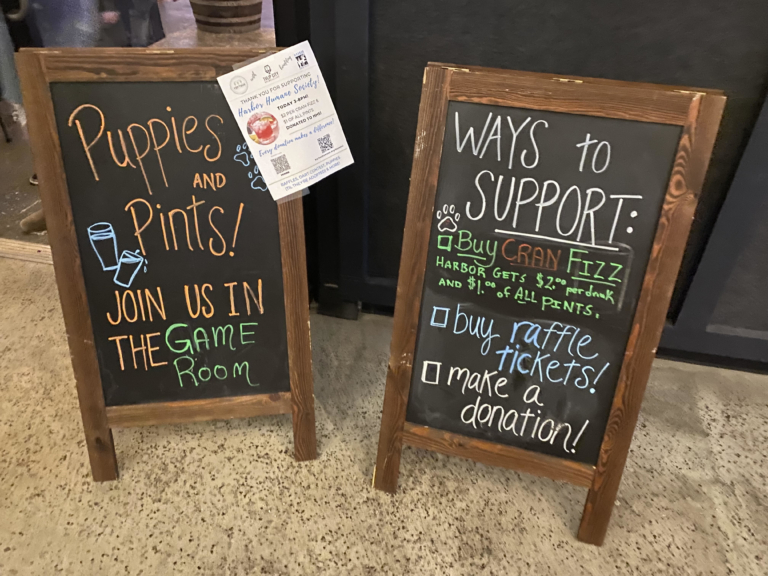 Puppies
AND
Pints!
JOIN US IN
THE GAME
ROOM
THANK YOU FOR SUPPORTING
Harbor Humane Society!
TODAY
$2 PER CRAN FIZZ &
$1 OF ALL PINTS
DONATED TO HHS!
Every donation makes a difference!
WAYS to
SUPPORT:
Buy CRAN FIZZ
HARBOR GETS $2.00 per drink
AND $1.00 of ALL PINTS.
buy raffle
tickets!
make a
donation!